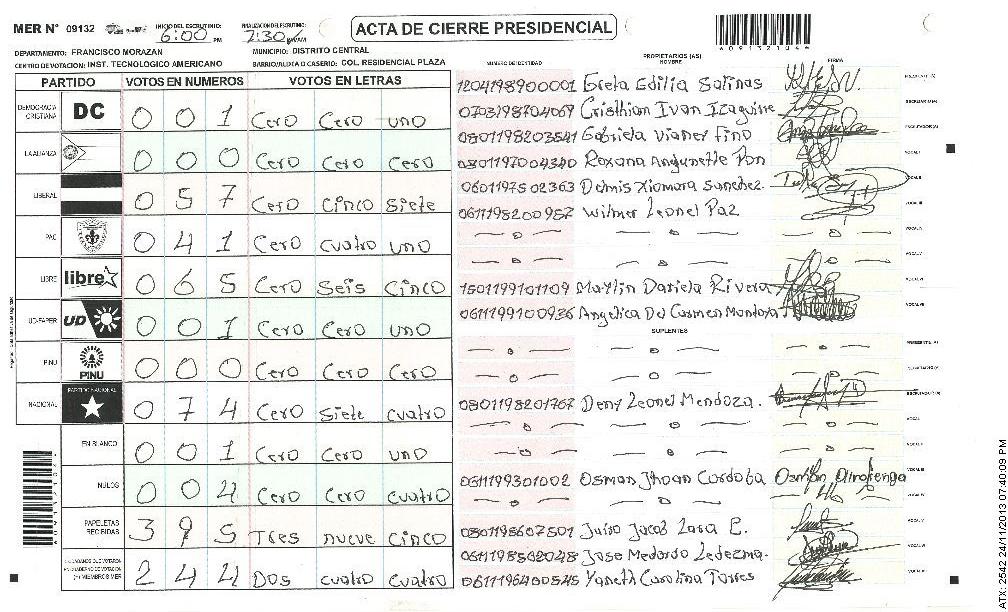 MER N° 09132 INICIO DEL ESCRUTINIO: 6:00 PM FINALIZACION ESCRUTINIO: 7:30 ACTA DE CIERRE PRESIDENCIAL
DEPARTAMENTO: FRANCISCO MORAZAN MUNICIPIO: DISTRITO CENTRAL
CENTRO DE VOTACION: INST. TECNOLOGICO AMERICANO BARRIO/ALDEA O CASERIO: COL. RESIDENCIAL PLAZA
NUMERO DE IDENTIDAD PROPIETARIOS (AS) NOMBRE FIRMA
PARTIDO VOTOS EN NUMEROS VOTOS EN LETRAS
DEMOCRACIA CRISTIANA DC 0 0 1 Cero Cero uno
LA ALIANZA 0 0 0 Cero Cero Cero
LIBERAL 0 5 7 Cero Cinco Siete
PAC 0 4 1 Cero cuatro uno
LIBRE libre 0 6 5 Cero Seis Cinco
UD-FAPER UD 0 0 1 Cero Cero uno
PINU PINU 0 0 0 Cero Cero Cero
NACIONAL PARTIDO NACIONAL 0 7 4 Cero Siete cuatro
EN BLANCO 0 0 1 Cero Cero uno
NULOS 0 0 4 Cero Cero cuatro
PAPELETAS RECIBIDAS 3 9 5 Tres nueve cinco
2 4 4 Dos cuatro cuatro
1204198900001 Greta Edilia Salinas
0703198704069 Cristhian Ivan Izaguirre
0801198203541 Gabriela Vianey Fino
0801197004340 Roxana
0601197502363 Denis Xiomara Sanchez.
0611198200957 Wilmer Leonel Paz
1501199101109 Maylin Dariela Rivera
0611199100926 Angelica Del Carmen Mendoza
SUPLENTES
0801198201767 Deny Leonel Mendoza.
0611199301002 Osman Jhoan Cordoba Osman
0801198607501 Juiro Jacob Lara E.
0611198502048 Jose Medardo Ledezma.
0611196400545 Yaneth Carolina Torres
ATX: 2542 24/11/2013 07:40:09 PM